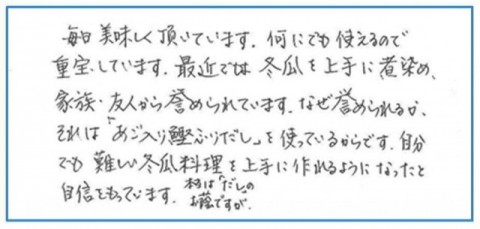 毎日美味しく頂いています。何にでも使えるので
重宝しています。最近では冬瓜を上手に煮染め、
家族・友人から誉められています。なぜ誉められるか、
それは「あご入り鰹ふりだし」を使っているからです。自分
でも難しい冬瓜料理を上手に作れるようになったと
自信をもっています。本当は「だしの
お蔭ですが。